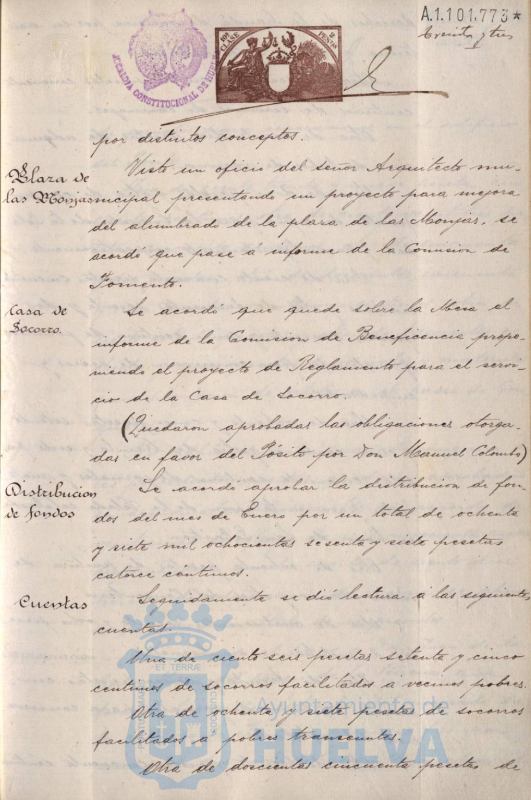 A.1.101,773*
ALCALDIA CONSTITUCIONAL DE HUELVA
por distintos conceptos.
Plaza de las Monjas
Visto un oficio del señor Arquitecto mu-
nicipal presentando un proyecto para mejora
del alumbrado de la plaza de las Monjas, se
acordó que pase á informe de la Comision de
Fomento.
Casa de Socorro.
Se acordó que quede sobre la Mesa el
informe de la Comision de Beneficencia propo-
niendo el proyecto de Reglamento para el servi-
cio de la Casa de Socorro.
(Quedaron aprobadas las obligaciones otorga-
das en favor del Pósito por Don Manuel Colombo)
Distribucion de fondos
Se acordó aprobar la distribucion de fon-
dos del mes de Enero por un total de ochenta
y siete mil ochocientas sesenta y siete pesetas
catorce centimos.
Cuentas
Seguidamente se dió lectura á las siguientes
cuentas.
Una de ciento seis pesetas setenta y cinco
centimos de socorros facilitados á vecinos pobres.
Otra de ochenta y siete pesetas de socorros
facilitados á pobres transeuntes.
Otra de doscientas cincuenta pesetas de
Ayuntamiento de
HUELVA